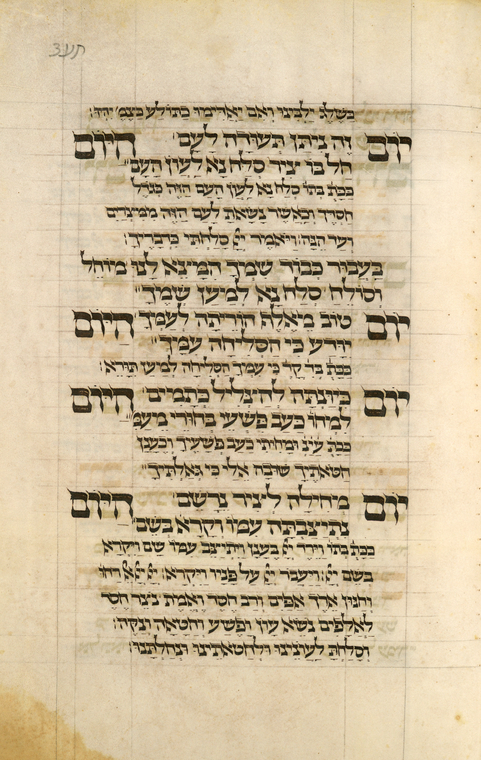 תע״ג
כשלג ילבינו ואם יאדימו כתולע כצמר יהיו׃
יום זה ניתן תשורה לעם׳ היום
חל בו ציר סלח נא לעון העם׳׳
ככת׳ בתו׳ סלח נא לעון העם הזה כגודל
חסדיך וכאשר נשאת לעם הזה ממצרים
ועד הנה׃ ויאמר יי׳ סלחתי כדבריך׃
בעבור כבוד שמך המצא לנו מוחל
וסולח סלח נא למען שמך׳׳
יום טוב מאלה הוריתה לעמך׳ היום
יודע כי הסליחה עמך׳׳
ככת׳ בד׳ קד׳ כי עמך הסליחה למען תורא׃
יום כיונתה להצליל כתמים׳ היום
למחו כעב פשעי
ככת׳ מחיתי כעב פשעיך וכענן
חטאתיך שובה אלי כי גאלתיך׃
יום מחילה לציר נרשם׳ היום
נתיצבתה עמו וקרא בשם׳
ככת׳ בתו׳ וירד יי׳ בענן ויתיצב עמו שם ויקרא
בשם יי׳׃ ויעבר יי׳ על פניו ויקרא׃ יי׳ יי׳ אל רחו׳
וחנון ארך אפים ורב חסד ואמת נוצר חסד
לאלפים נושא עון ופשע וחטאה ונקה׃
וסלחת לעונינו ולחטאתינו ונחלתנו׃